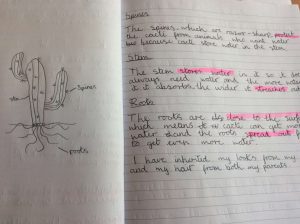 Spines
stem
roots
Spines
The spines which are razor-sharp protect
the cacti from animals who want water
but because cacti store water in the stem.
Stem
The stem stores water in it so it does
always need water and the more water
it absorbs the wider it stretches out
Roots
The roots are close to the surf
which means cacti can get mor
water and the roots spread out f
to get even more water.
I have inherited my looks from my
and my hair from both my parents.